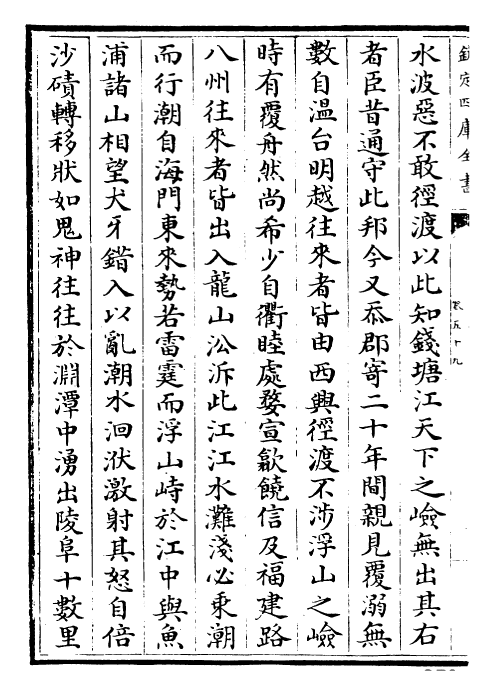 欽定四庫全書
卷五十九
水波惡不敢徑渡以此知錢塘江天下之嶮無出其右
者臣昔通守此邦今又忝郡寄二十年間親見覆溺無
數自溫台明越往來者皆由西興徑渡不涉浮山之嶮
時有覆舟然尚希少自衢睦處婺宣歙饒信及福建路
八州往來者皆出入龍山沿泝此江江水灘淺必乘潮
而行潮自海門東來勢若雷霆而浮山峙於江中與魚
浦諸山相望犬牙錯入以亂潮水洄洑激射其怒自倍
沙磧轉移狀如鬼神往往於淵潭中湧出陵阜十數里